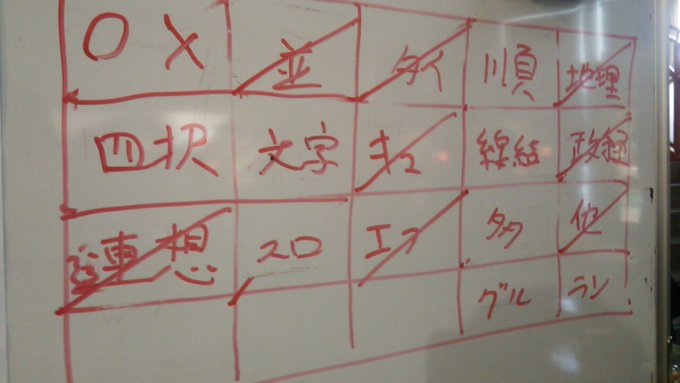 ○ × 並 タイ 順 地理
四択 文字 キュ 線結 政経
連想 スロ エフ 多 他
グル ラン